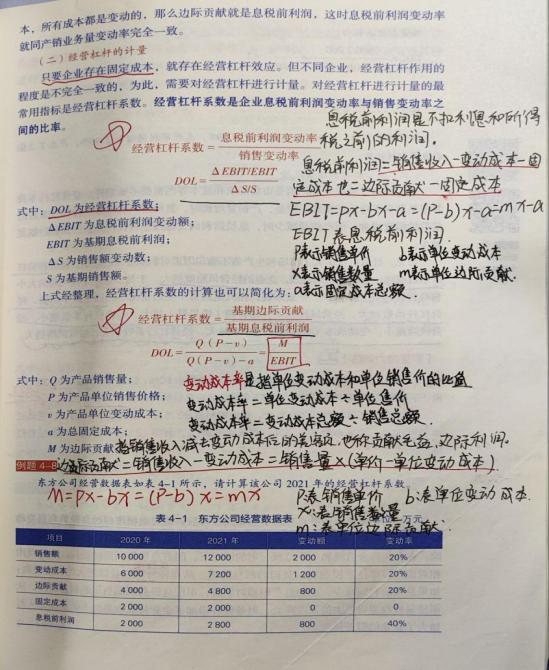 本，所有成本都是变动的，那么边际贡献就是息税前利润，这时息税前利润变动率
就同产销业务量变动率完全一致。
（二）经营杠杆的计量
只要企业存在固定成本，就存在经营杠杆效应。但不同企业，经营杠杆作用的
程度是不完全一致的，为此，需要对经营杠杆进行计量。对经营杠杆进行计量的最
常用指标是经营杠杆系数。经营杠杆系数是企业息税前利润变动率与销售变动率之
间的比率。
息税前利润是不扣利息和所得
税之前的利润。
经营杠杆系数=息税前利润变动率/销售变动率
息税前利润=销售收入-变动成本-固
定成本 也=边际贡献-固定成本
DOL=ΔEBIT/EBIT / ΔS/S
EBIT=px-bx-a=(P-b)x-a=mx-a
式中：DOL为经营杠杆系数；
EBIT表息税前利润.
ΔEBIT为息税前利润变动额；
P表示销售单价 b表示单位变动成本
EBIT为基期息税前利润；
x表示销售数量 m表示单位边际贡献.
ΔS为销售额变动数；
a表示固定成本总额.
S为基期销售额。
上式经整理，经营杠杆系数的计算也可以简化为：
经营杠杆系数=基期边际贡献/基期息税前利润
DOL=Q（P-v）/Q（P-v）-a=M/EBIT
式中：Q为产品销售量；
变动成本率是指单位变动成本和单位销售价的比值
P为产品单位销售价格；
变动成本率=单位变动成本÷单位售价
v为产品单位变动成本；
变动成本率=变动成本总额÷销售总额.
a为总固定成本；
M为边际贡献
指销售收入减去变动成本后的差额，也称贡献毛益、边际利润。
例题 4-8
边际贡献=销售收入-变动成本=销售量×(单价-单位变动成本)
东方公司经营数据表如表 4-1 所示，请计算该公司 2021 年的经营杠杆系数。
M=px-bx=(P-b)x=mx
P:表销售单价 b:表单位变动成本.
x:表销售数量
m:表单位边际贡献.
表 4-1 东方公司经营数据表 万元
项目 2020 年 2021 年 变动额 变动率
销售额 10 000 12 000 2 000 20%
变动成本 6 000 7 200 1 200 20%
边际贡献 4 000 4 800 800 20%
固定成本 2 000 2 000 0 0
息税前利润 2 000 2 800 800 40%